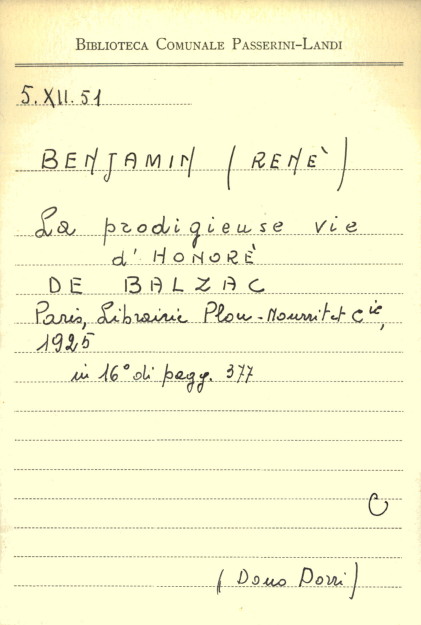 BIBLIOTECA COMUNALE PASSERINI-LANDI
5.XII.51
BENJAMIN (RENÈ)
La prodigieuse vie
d'HONORÈ
DE BALZAC
Paris, Librairie Plon-Nourrit et Cie,
1925
in 16° di pagg. 377
C
(Dono